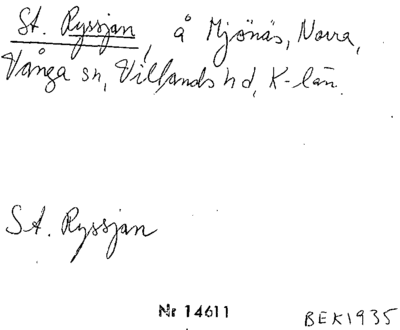 St. Ryssjan, å Mjönäs, Norra,
Vånga sn, Villands hd, K-län.
St. Ryssjan
Nr 14611
BEK1935